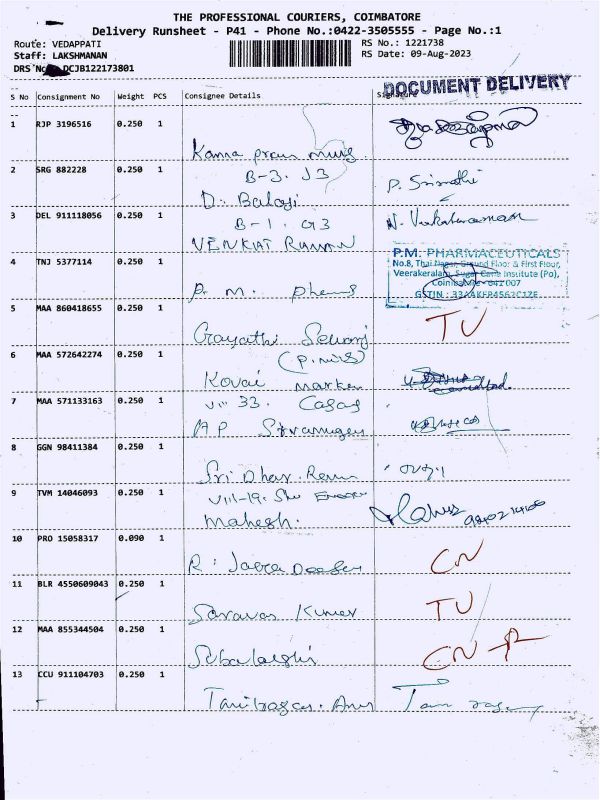 THE PROFESSIONAL COURIERS, COIMBATORE
Delivery Runsheet - P41 - Phone No.:0422-3505555 - Page No.:1
Route: VEDAPPATI
RS No.: 1221738
Staff: LAKSHMANAN
RS Date: 09-Aug-2023
DRS No DCJB122173801
DOCUMENT DELIVERY
S No Consignment No Weight PCS Consignee Details Signature
1 RJP 3196516 0.250 1
Kanna
B-3. J3
2 SRG 882228 0.250 1
D. Balaji D. Srimathi
B-1. G3
3 DEL 911118056 0.250 1
VENKAT RAMAN N. Venkataraman
4 TNJ 5377114 0.250 1
P.M. PHARMACEUTICALS
No.8, Thai Nagar, Ground Floor & First Flour,
Veerakeralam, Sugar Cane Institute (Po),
Coimbatore-641007
GSTIN: 33AAKFP4562C1ZE
P. M. Pharma
5 MAA 860418655 0.250 1
Gayathi TU
6 MAA 572642274 0.250 1
Kovai
7 MAA 571133163 0.250 1
VIII 33.
A P
8 GGN 98411384 0.250 1
Sri Dhar
VIII-19. Sri
9 TVM 14046093 0.250 1
Mahesh.
10 PRO 15058317 0.090 1
R. CN
11 BLR 4550609043 0.250 1
Saravan Kumar TU
12 MAA 855344504 0.250 1
Subalakshi CN
13 CCU 911104703 0.250 1